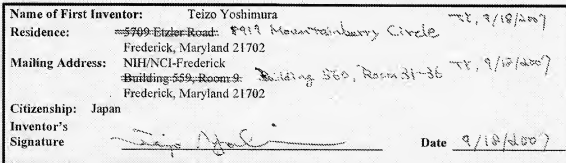 Name of First Inventor: Teizo Yoshimura
Residence: 5709 Etzler Road 8919 Mountainberry Circle TY, 9/18/2007
Frederick, Maryland 21702
Mailing Address: NIH/NCI-Frederick
Building 559, Room 9 Building 560, Room 31-36 TY, 9/18/2007
Frederick, Maryland 21702
Citizenship: Japan
Inventor's
Signature Date 9/18/2007